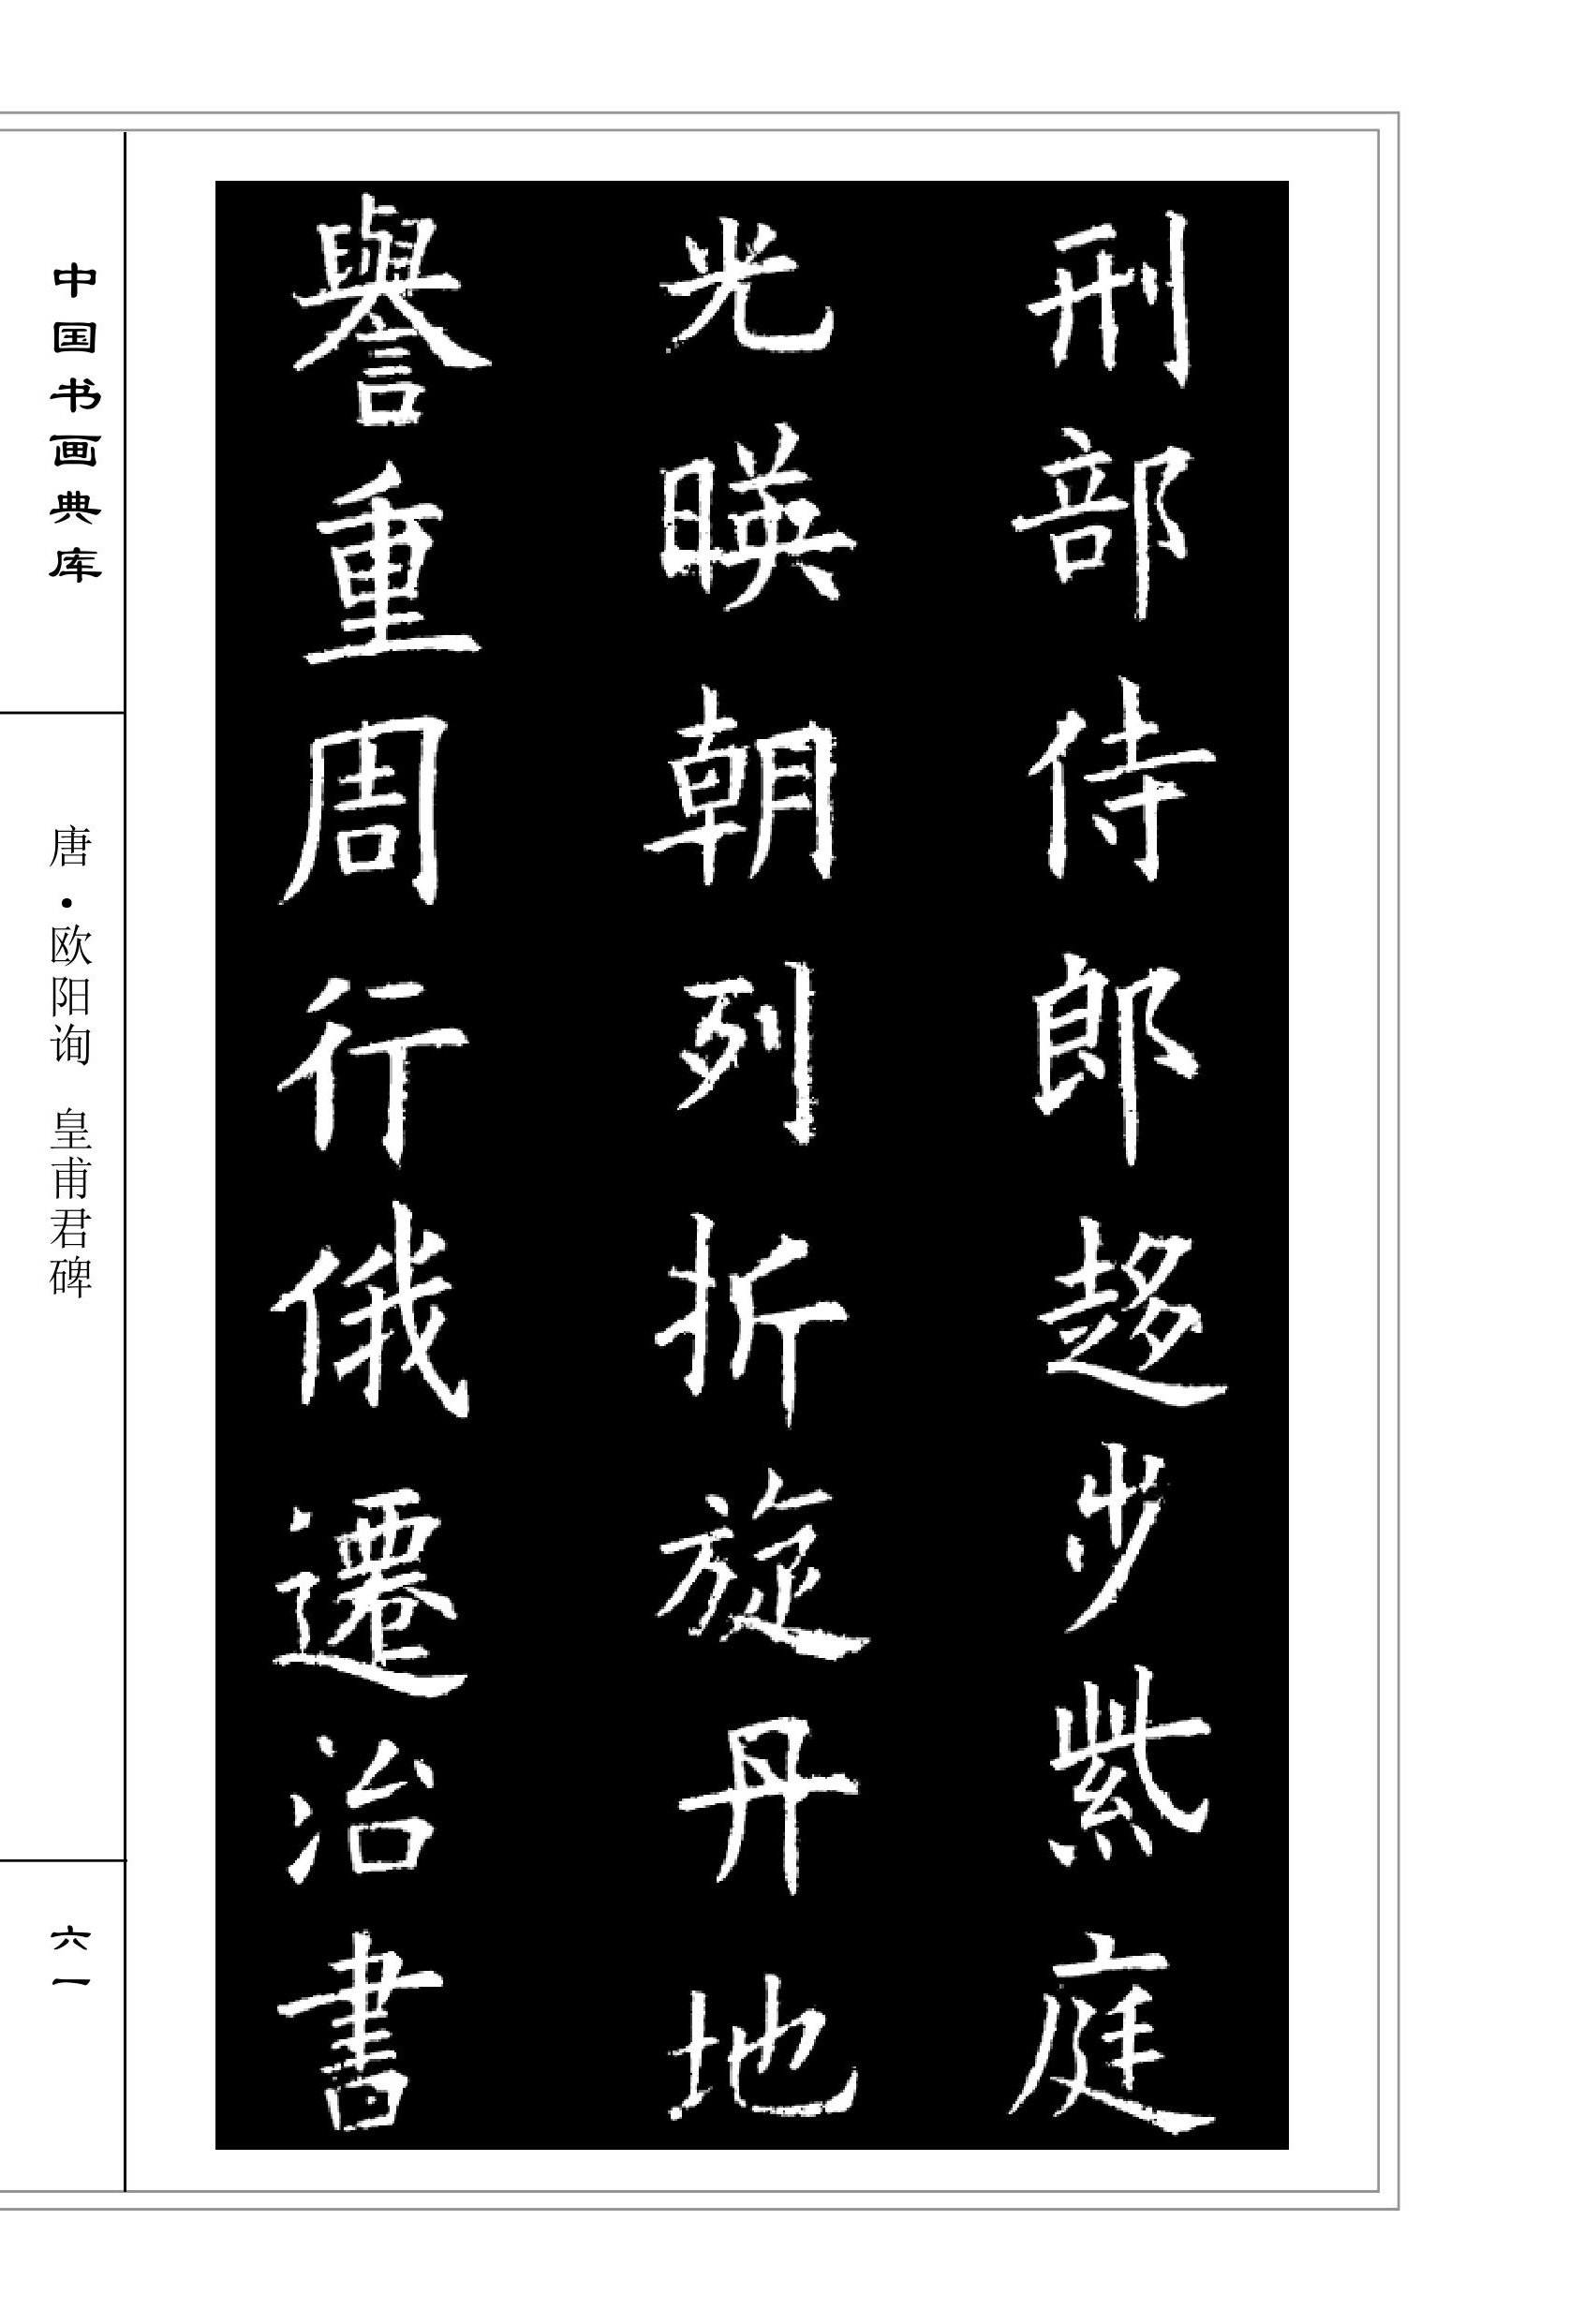 刑部侍郎趍步紫庭
光暎朝列折旋丹地
譽重周行俄遷治書
中国书画典库
唐·欧阳询 皇甫君碑
六一